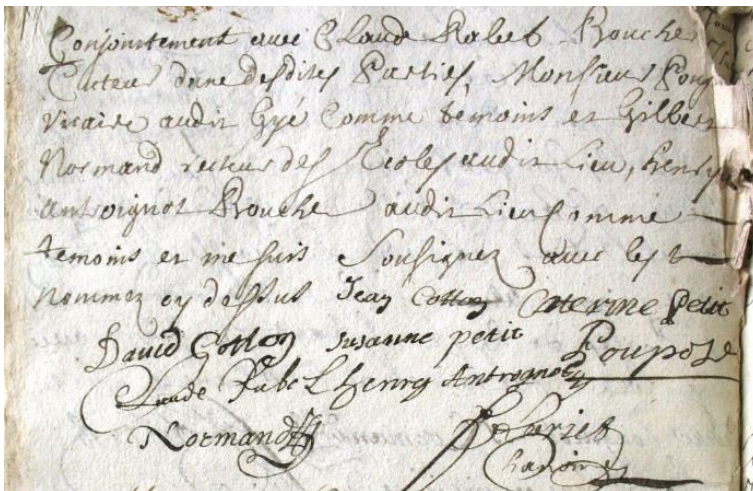 Conjointement avec Claude Rabet Bouche
Tuteur dune desdites Parties, Monsieur
Vicaire audit Gyé Comme temoins et Gilbert
Normand recteur des Ecoles audit Lieu, henry
antoignot Bouche audit Lieu Comme
temoins et me suis Sousignez avec les
nommez cy dessus Jean Catterine Petit
David susanne petit
Claude henry
Normand